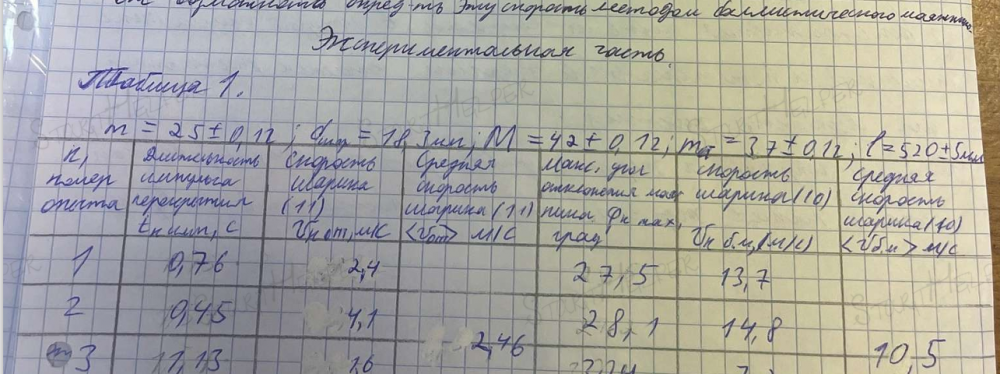 опред-ть эту скорость методом баллистического маятника.
Экспериментальная часть.
Таблица 1.
m = 25 ± 0,12 ; dшар = 18,3 мм ; M = 42 ± 0,12 ; mст = 37 ± 0,12 ; l = 520 ± 5 мм
n, номер опыта | Длительность импульса перекрытия tn имп, с | Скорость шарика (11) Vn от, м/с | Средняя скорость шарика (11) <Vот> м/с | Макс. угол отклонения маятника φn max, град | скорость шарика (10) Vn б.м, (м/с) | Средняя скорость шарика (10) <Vб.м> м/с
1 | 0,76 | 2,4 | 27,5 | 13,7
2 | 0,45 | 4,1 | 28,1 | 14,8
3 | 1,13 | 1,6 | 2,46 | 10,5
STUDIT HELPER